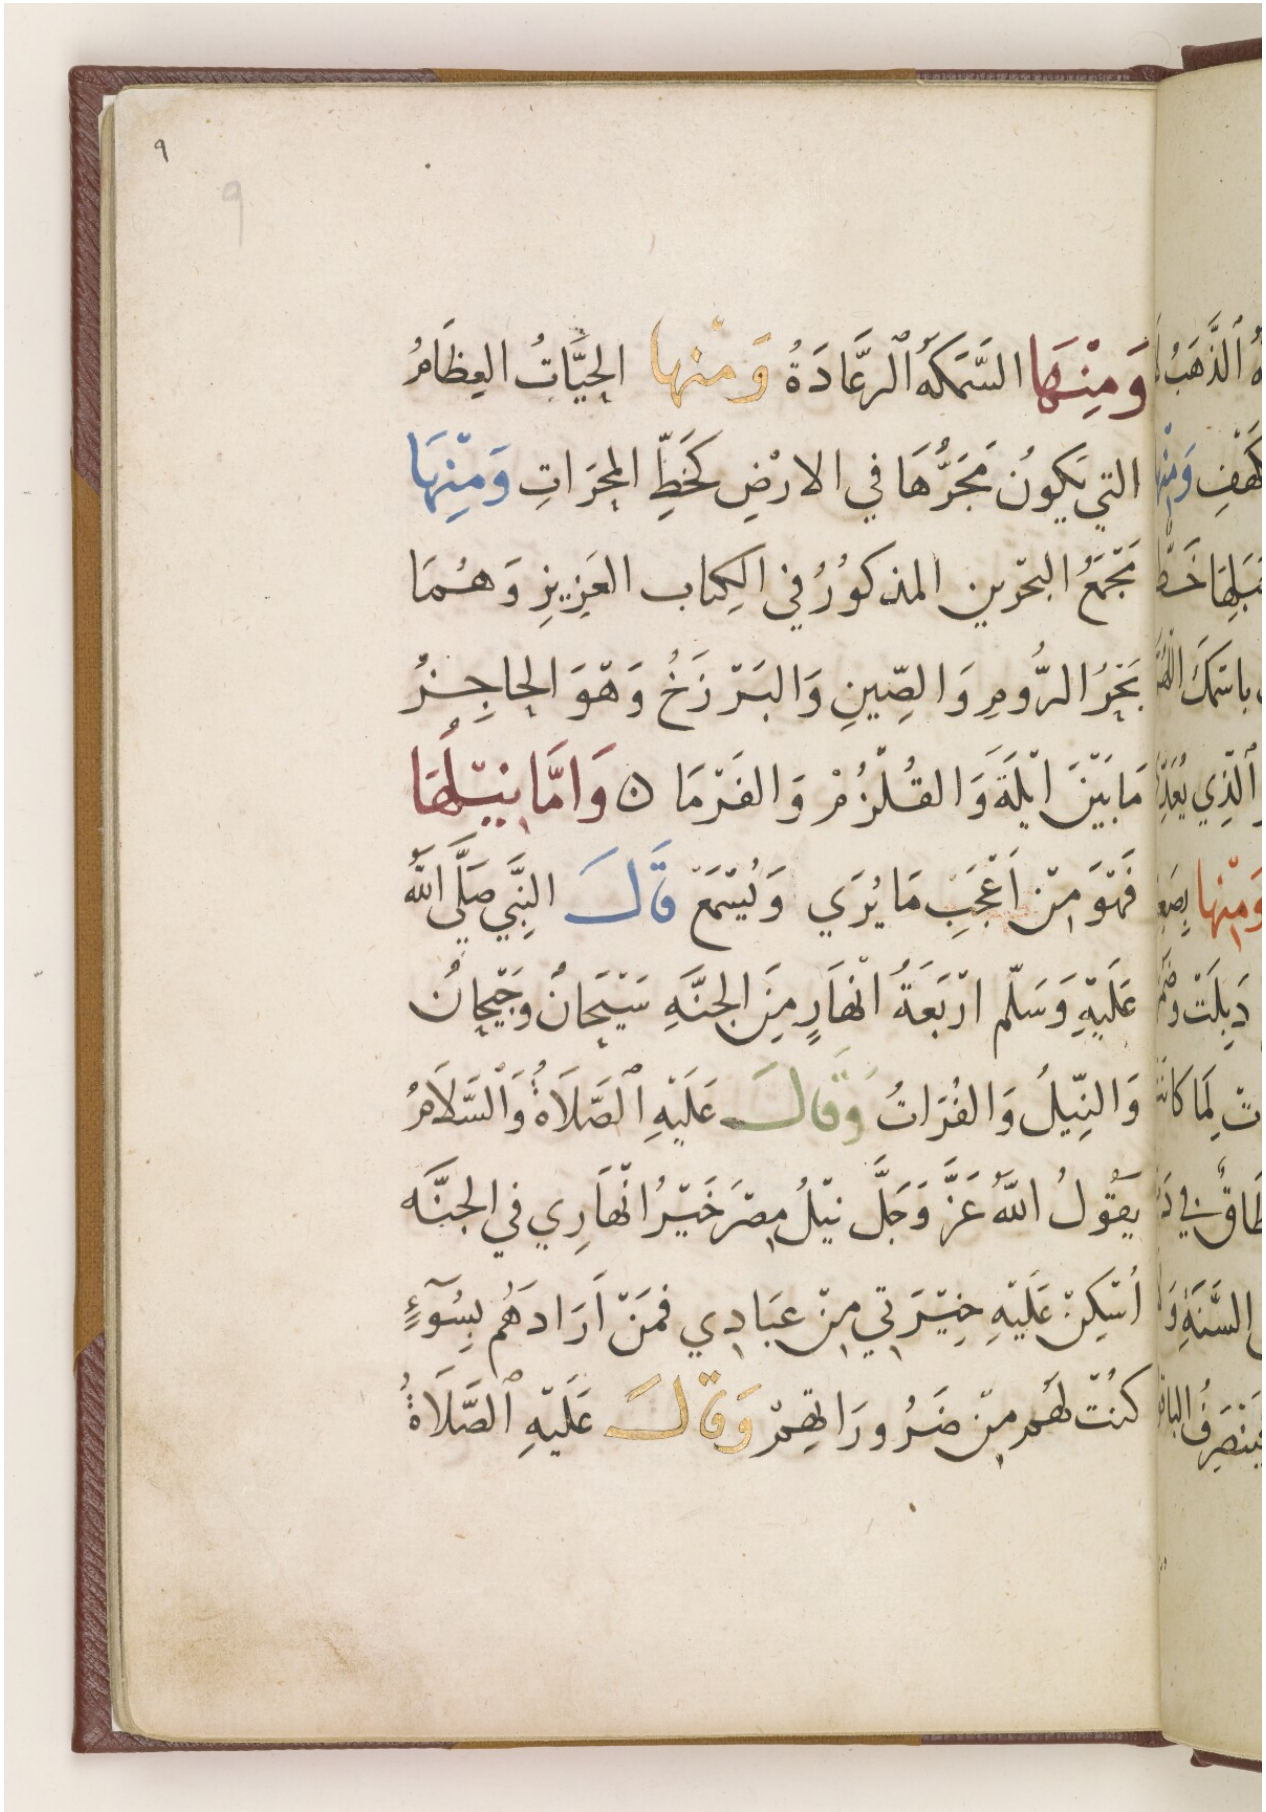 ٩
9
وَمِنْهَا السَّمَكَةُ ٱلرَّعَّادَةُ وَمنْها الحِيَّاتُ العِظَامُ
التي يَكونُ مَجَرُّهَا في الارْضِ كَخَطِّ المِحرَاتِ وَمِنْهَا
مَجْمَعُ البحْرين المذكورُ في الكِتاب العَزِيزِ وَهُمَا
بَحْرُ الرُّومِ وَالصِّينِ وَالبَرْزَخُ وَهْوَ الحاجِزُ
مَا بَيْنَ ايْلَةَ وَالقُلْزُمْ وَالفَرْمَا ٥ وَامَّا نِيْلُهَا
فَهْوَ مِنْ اَعْجَبِ مَا يُرَي وَيُسْمَعْ قَالَ النَّبِي صَلَّي اللّه
عَلَيْهِ وَسَلّم ارْبَعَةُ انْهَارٍ مِنَ الجنَّهِ سَيْحَانُ وَجَيْحانُ
وَالنِّيلُ وَالفُرَاتُ وَقَالَ عَلَيْهِ ٱلصَّلَاةُ وَٱلسَّلَامُ
يَقُولُ اللّهُ عَزَّ وَجَلَّ نيْلُ مِصْرَ خَيْرُ انْهَارِي في الجنَّه
اُسْكِنْ عَلَيْهِ خِيْرَتي مِنْ عِبَادِي فمَنْ اَرَادَهُم بِسُوٓءٍ
كنْتُ لهُم مِنْ ضَرُورَاتِهِمْ وَقَالَ عَلَيْهِ ٱلصَّلَاةُ